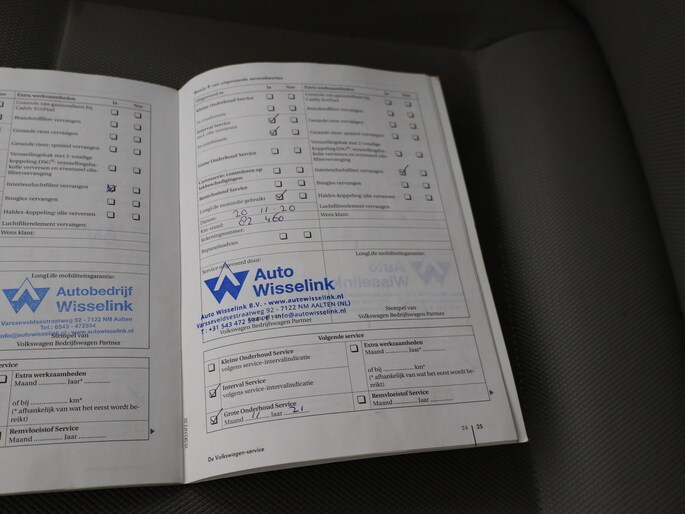 Extra werkzaamheden Ja Nee
Caddy EcoFuel
Brandstoffilter vervangen
Getande riem vervangen
Getande riem: spanrol vervangen
Versnellingsbak met 7-voudige
koppeling DSG®: versnellingsba-
kolie verversen en eventueel olie-
filtervervanging
Interieurluchtfilter vervangen
Bougies vervangen
Haldex-koppeling: olie verversen
Luchtfilterelement vervangen
Wens klant:
LongLife mobiliteitsgarantie:
Autobedrijf
Wisselink
Varsseveldsestraatweg 92 - 7122 NM Aalten
Tel.: 0543 - 472594
Stempel van
Volkswagen Bedrijfswagen Partner
service
Extra werkzaamheden
Maand laar*
of bij km*
(* afhankelijk van wat het eerst wordt be-
reikt)
Remvloeistof Service
Maand Jaar
Ja Nee Extra werkzaamheden Ja Nee
Kleine Onderhoud Service
Caddy EcoFuel
Brandstoffilter vervangen
Interval Service
Getande riem vervangen
Getande riem: spanrol vervangen
Grote Onderhoud Service
Versnellingsbak met 7-voudige
koppeling DSG®: versnellingsba-
kolie verversen en eventueel olie-
filtervervanging
Carrosserie: controleren op
lakbeschadigingen
Remvloeistof Service
Interieurluchtfilter vervangen
LongLife motorolie gebruikt
Bougies vervangen
Datum: 20 11 - 20
Haldex-koppeling: olie verversen
Km-stand: 82 460
Luchtfilterelement vervangen
Rekeningnummer:
Wens klant:
Reparatieadvies:
Service uitgevoerd door:
LongLife mobiliteitsgarantie:
Auto
Wisselink
Auto Wisselink B.V. - www.autowisselink.nl
Varsseveldsestraatweg 92 - 7122 NM AALTEN (NL)
T: +31 543 472 594 - E: info@autowisselink.nl
Volkswagen Bedrijfswagen Partner
Stempel van
Volkswagen Bedrijfswagen Partner
Volgende service
Kleine Onderhoud Service
volgens service-intervalindicatie
Interval Service
volgens service-intervalindicatie
Grote Onderhoud Service
Maand 11 Jaar 21
Extra werkzaamheden
Maand laar*
of bij km*
(* afhankelijk van wat het eerst wordt be-
reikt)
Remvloeistof Service
Maand Jaar
De Volkswagen-service
24 25